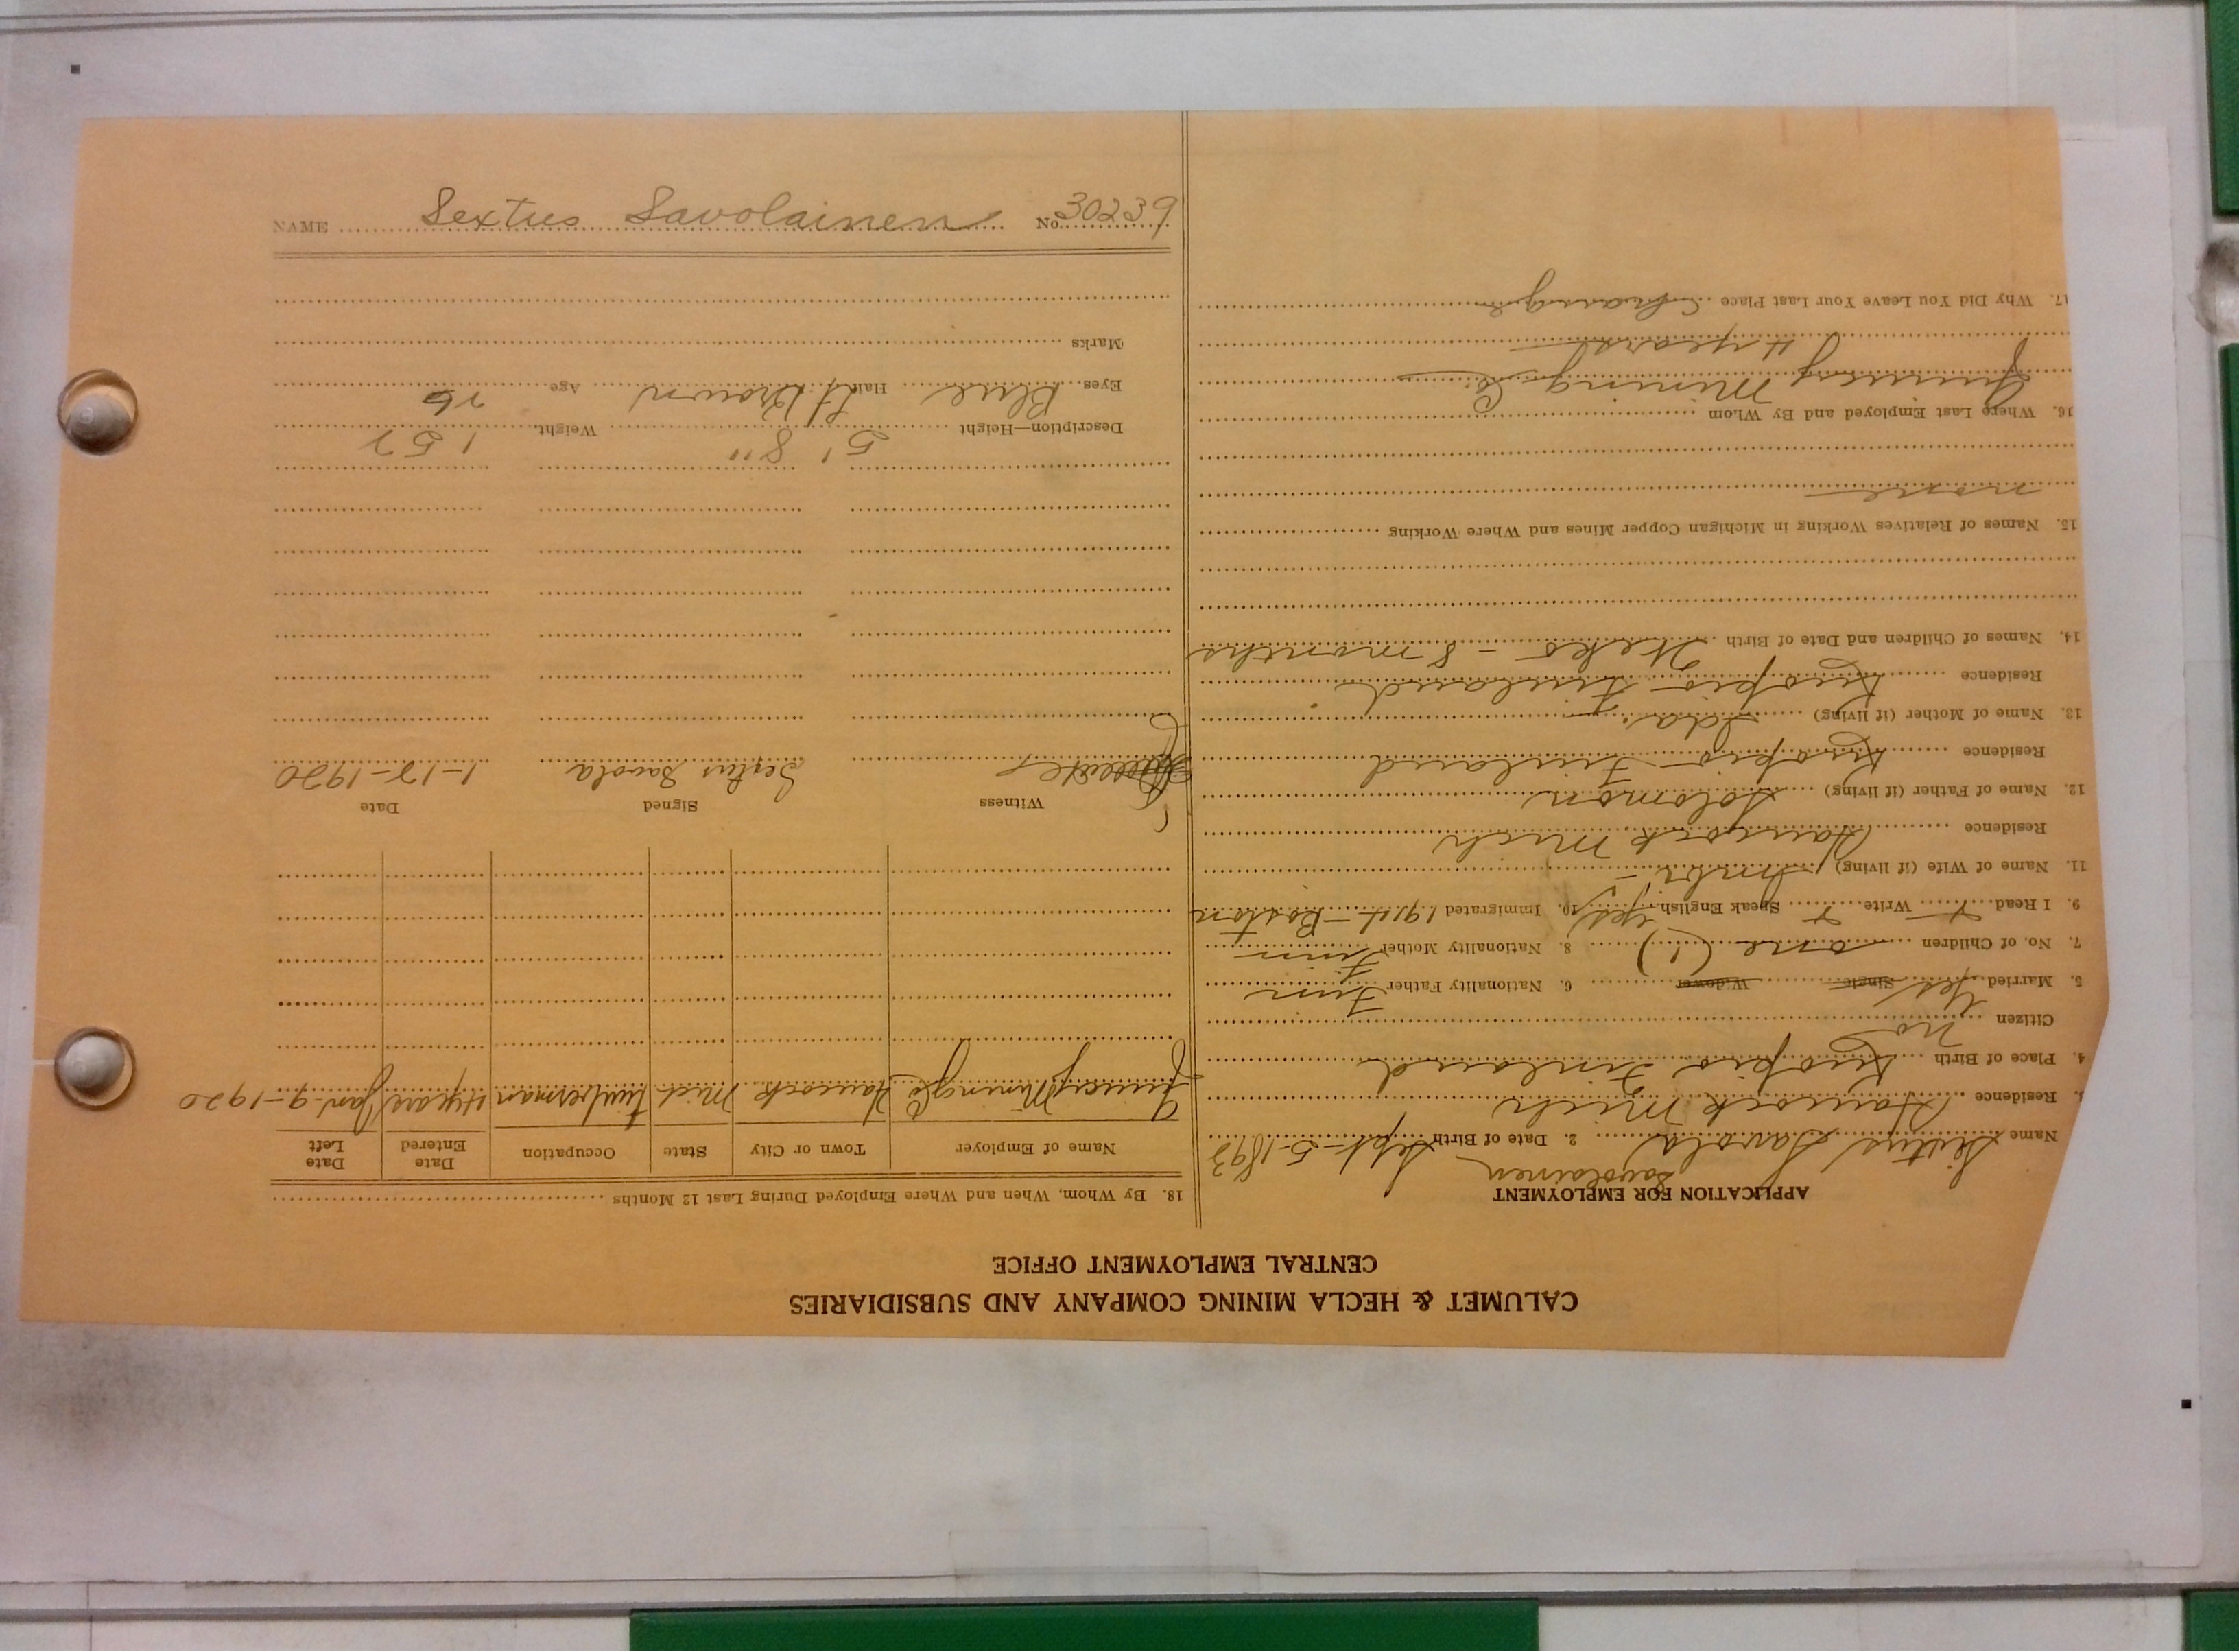 CALUMET & HECLA MINING COMPANY AND SUBSIDIARIES
CENTRAL EMPLOYMENT OFFICE
APPLICATION FOR EMPLOYMENT
Savolainen
Name Sixtus Savola 2. Date of Birth Sept-5-1893
Residence Hancock Mich
4. Place of Birth Kuopio Finland
Citizen No
5. Married Yes Single Widower 6. Nationality Father Finn
7. No. of Children one (1) 8. Nationality Mother Finn
9. I Read Write Speak English yes 10. Immigrated 1914-Boston
11. Name of Wife (if living)
Residence Hancock Mich
12. Name of Father (if living) Solomon
Residence Kuopio-Finland
13. Name of Mother (if living) Ida
Residence Kuopio-Finland
14. Names of Children and Date of Birth - 8 months
15. Names of Relatives Working in Michigan Copper Mines and Where Working
none
16. Where Last Employed and By Whom
Quincy Mining Co.
4 years
17. Why Did You Leave Your Last Place Change
18. By Whom, When and Where Employed During Last 12 Months
Name of Employer Town or City State Occupation Date Entered Date Left
Quincy Mining Co Hancock Mich timberman 4 years Jan-9-1920
Witness Signed Date
Sextus Savola 1-12-1920
Description—Height 5' 8" Weight 152
Eyes Blue Hair Lt Brown Age 26
Marks
NAME Sextus Savolainen No. 30239